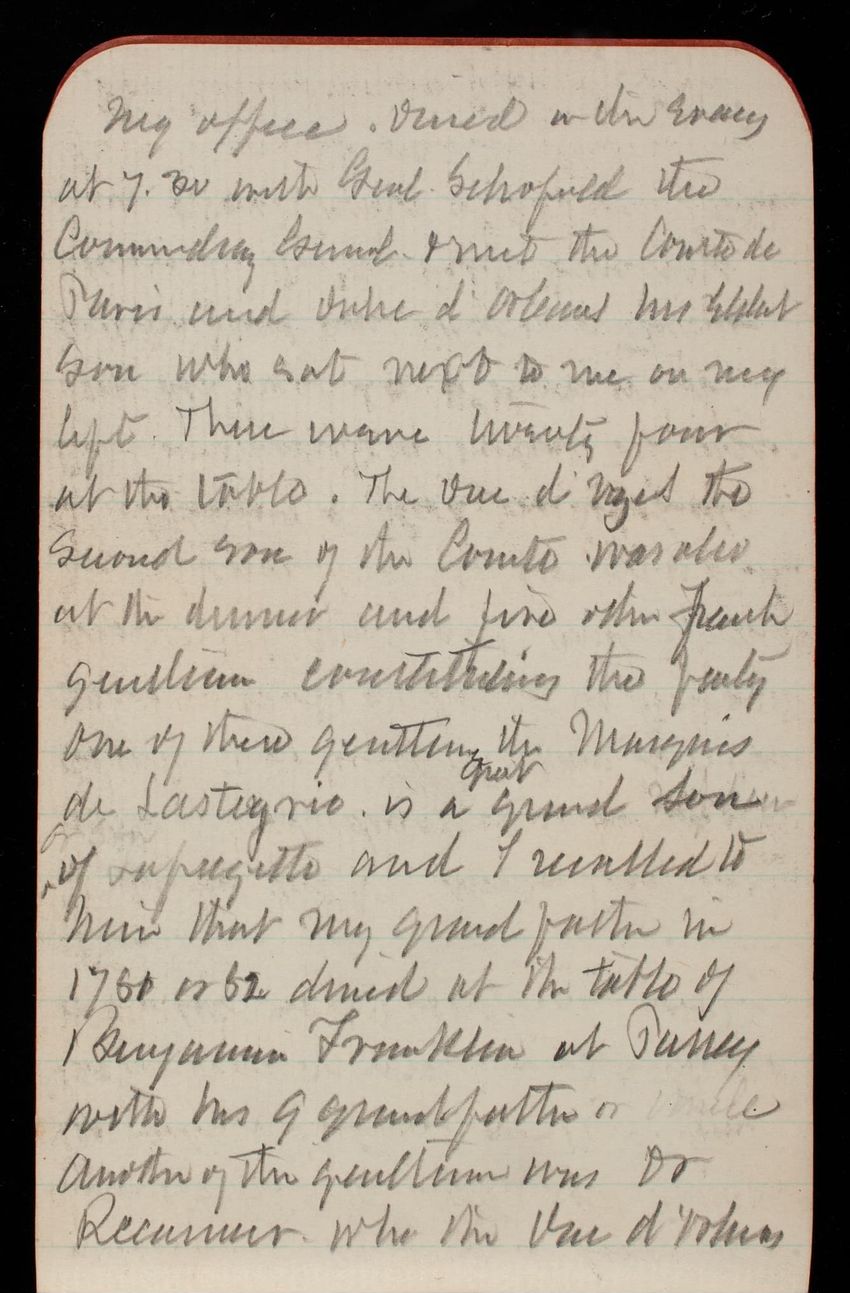 My office. Dined in the Evaey
at 7.30 with Genl. Schofield the
Commdng Genral. & met the Comte de
Paris and Duke d Orleans his Eldest
Son who sat next to me on my
left. There were twenty four
at the table. The Duc d'Uzes the
Second son of the Comte was also
at the dinner and five other French
gentlemen constituting the party
One of these gentlemen the Marquis
great
de Lasteyrie. is a grand son
of Lafayette and I recalled to
him that my grand father in
1781 or 82 dined at the table of
Benjamin Franklin at Passey
with his G grandfather or uncle
Another of the gentlemen was Dr
Recamier. who the Duc d'Orleans